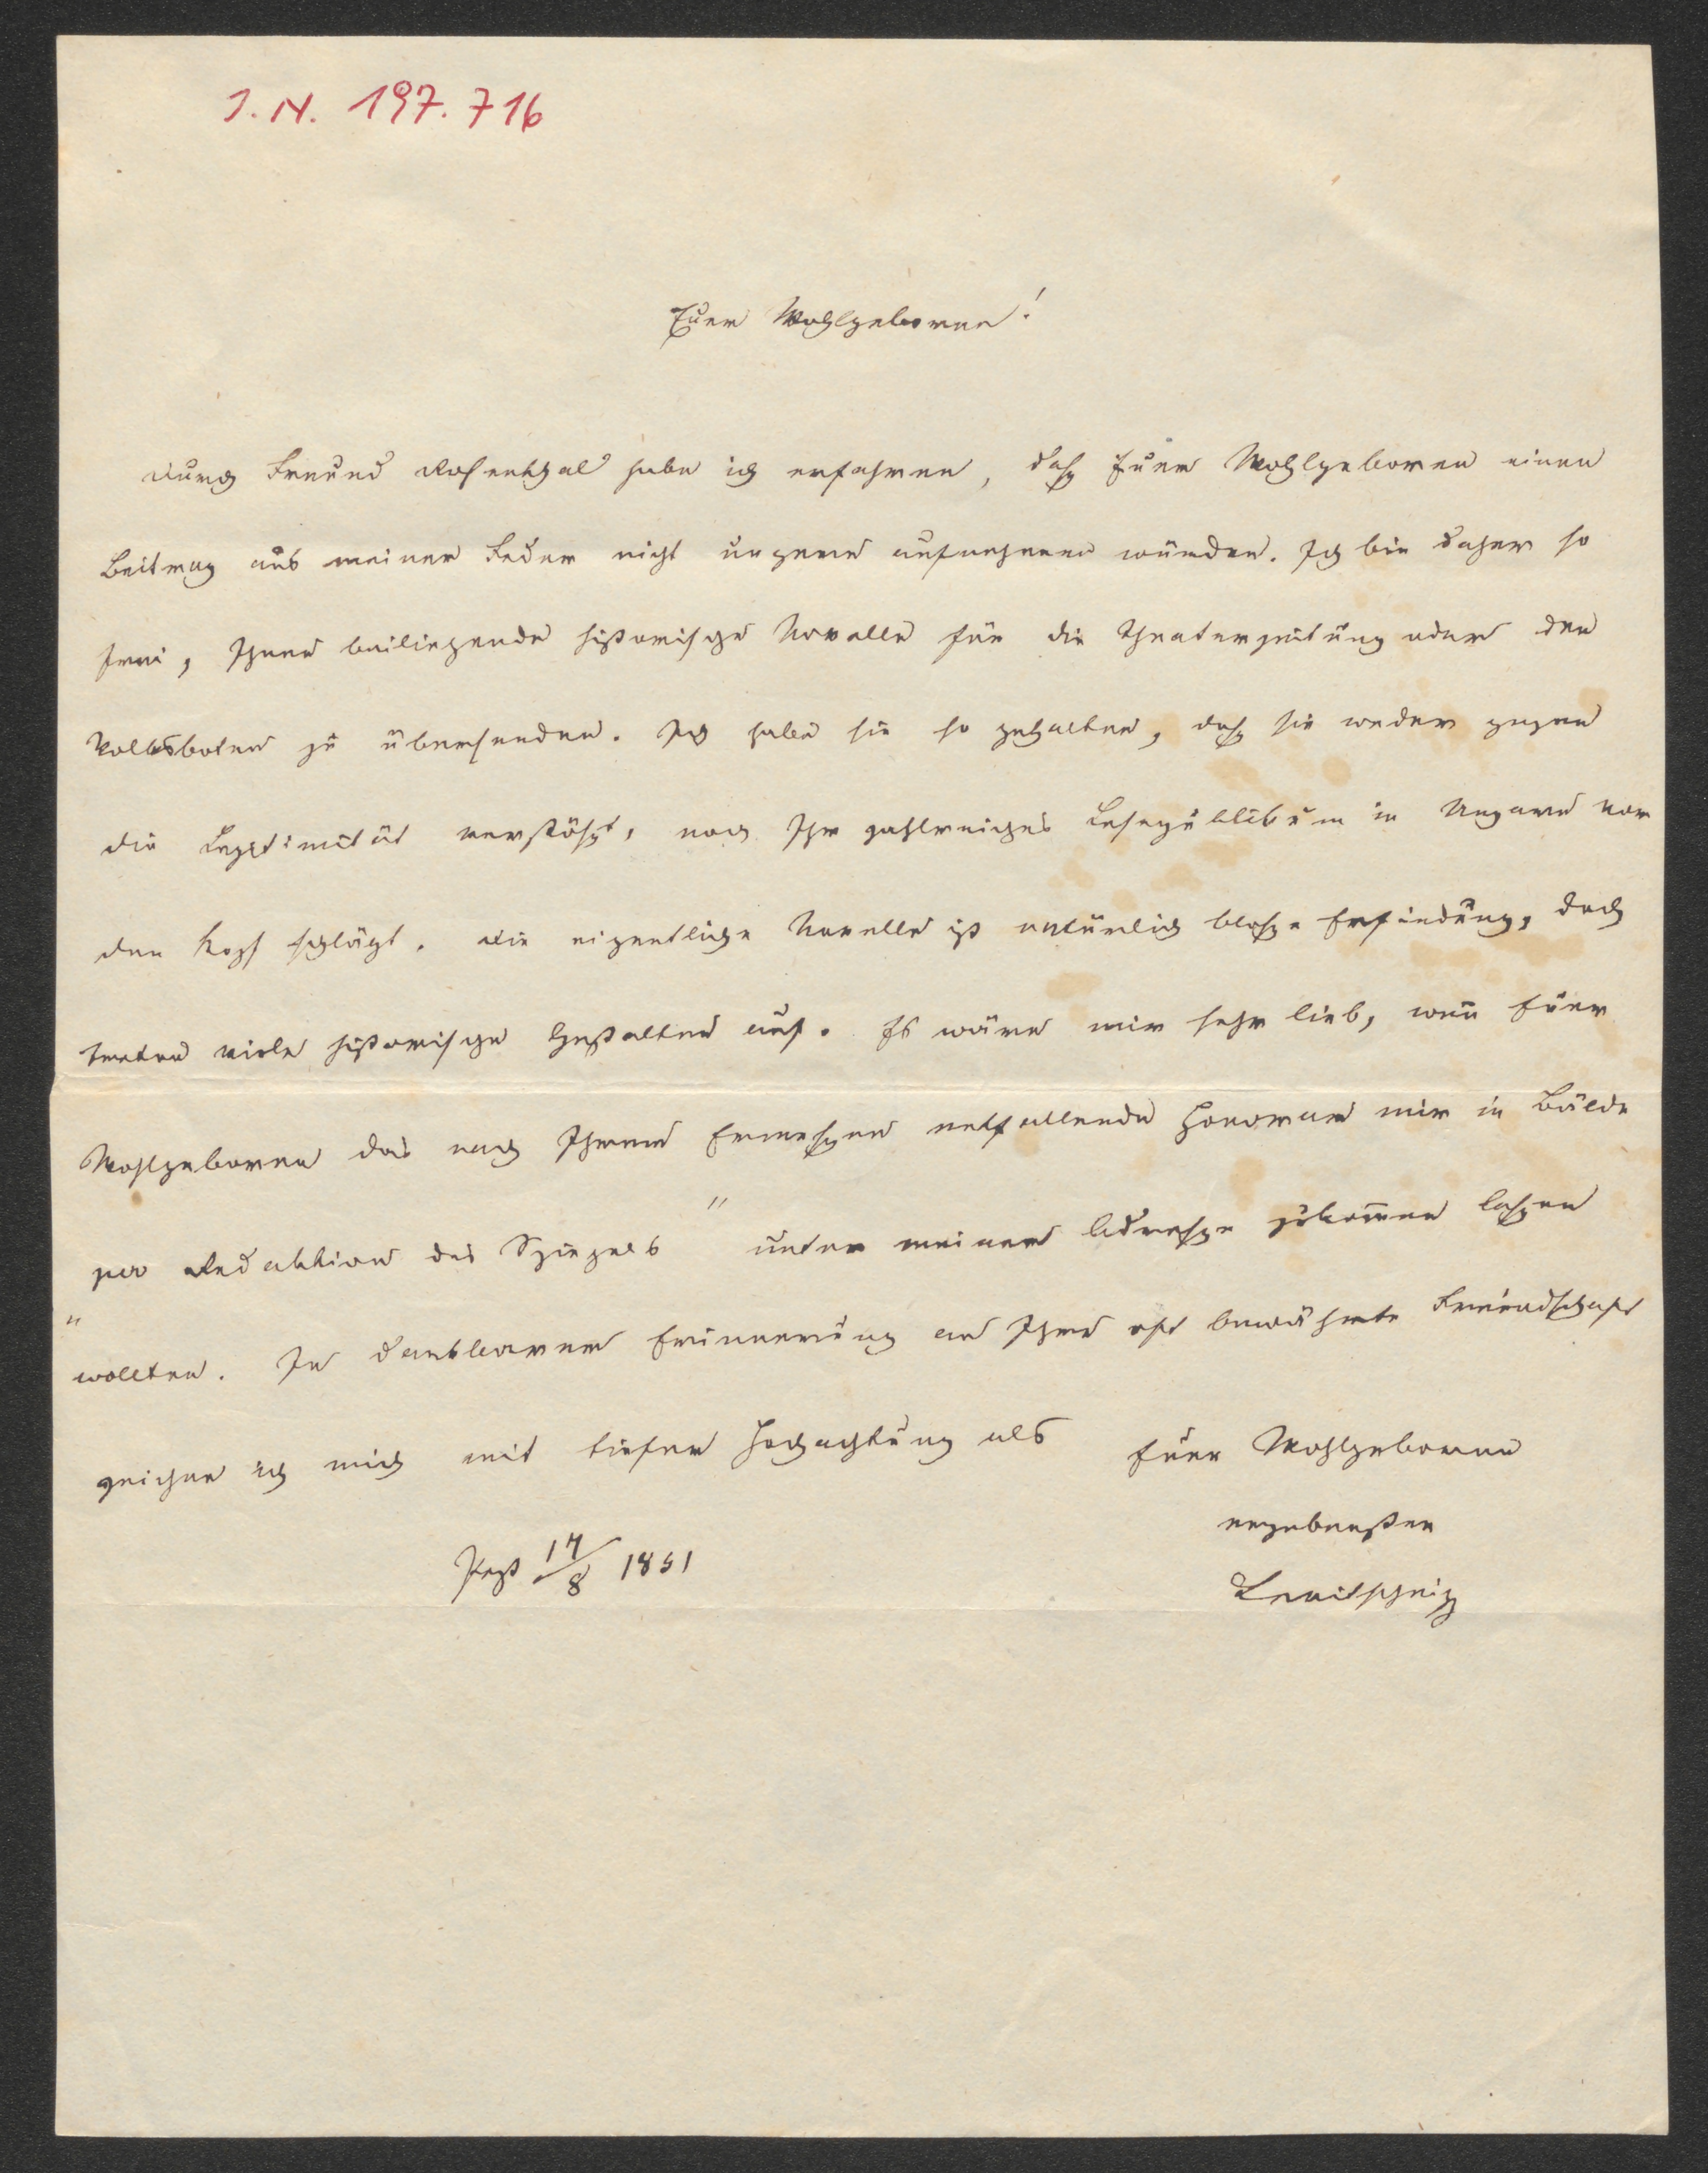 I.N. 197.716
Euer Wohlgeboren!
Durch Freund Rosenthal habe ich erfahren, daß Euer Wohlgeboren einen
Beitrag aus meiner Feder nicht ungern aufnehmen würden. Ich bin daher so
frei, Ihnen beiliegende historische Novelle für die Theaterzeitung oder den
Volksboten zu übersenden. Ich habe sie so gehalten, daß sie weder gegen
die Legitimität verstößt, noch Ihr zahlreiches Lesepublikum in Ungarn vor
den Kopf schlägt. Die eigentliche Novelle ist natürlich bloße Erfindung, doch
treten viele historische Gestalten auf. Es wäre mir sehr lieb, wen̄ Euer
Wohlgeboren das nach Ihrem Ermeßen entfallende Honorar mir in Bälde
per „Redaktion des Spiegels" unter meiner Adreße zukom̄en laßen
wollten. In dankbarer Erinnerung an Ihre oft bewährte Freundschaft
zeichne ich mich mit tiefer Hochachtung als Euer Wohlgeboren
ergebenster
Pest 14/8 1851
Levitschnigg